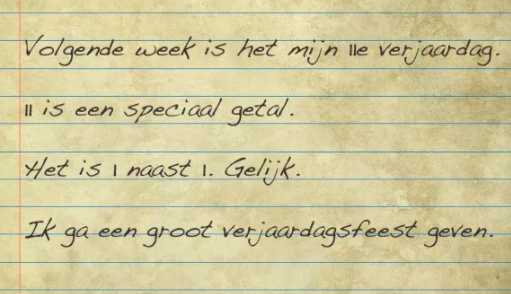 Volgende week is het mijn 11e verjaardag.
11 is een speciaal getal.
Het is 1 naast 1. Gelijk.
Ik ga een groot verjaardagsfeest geven.